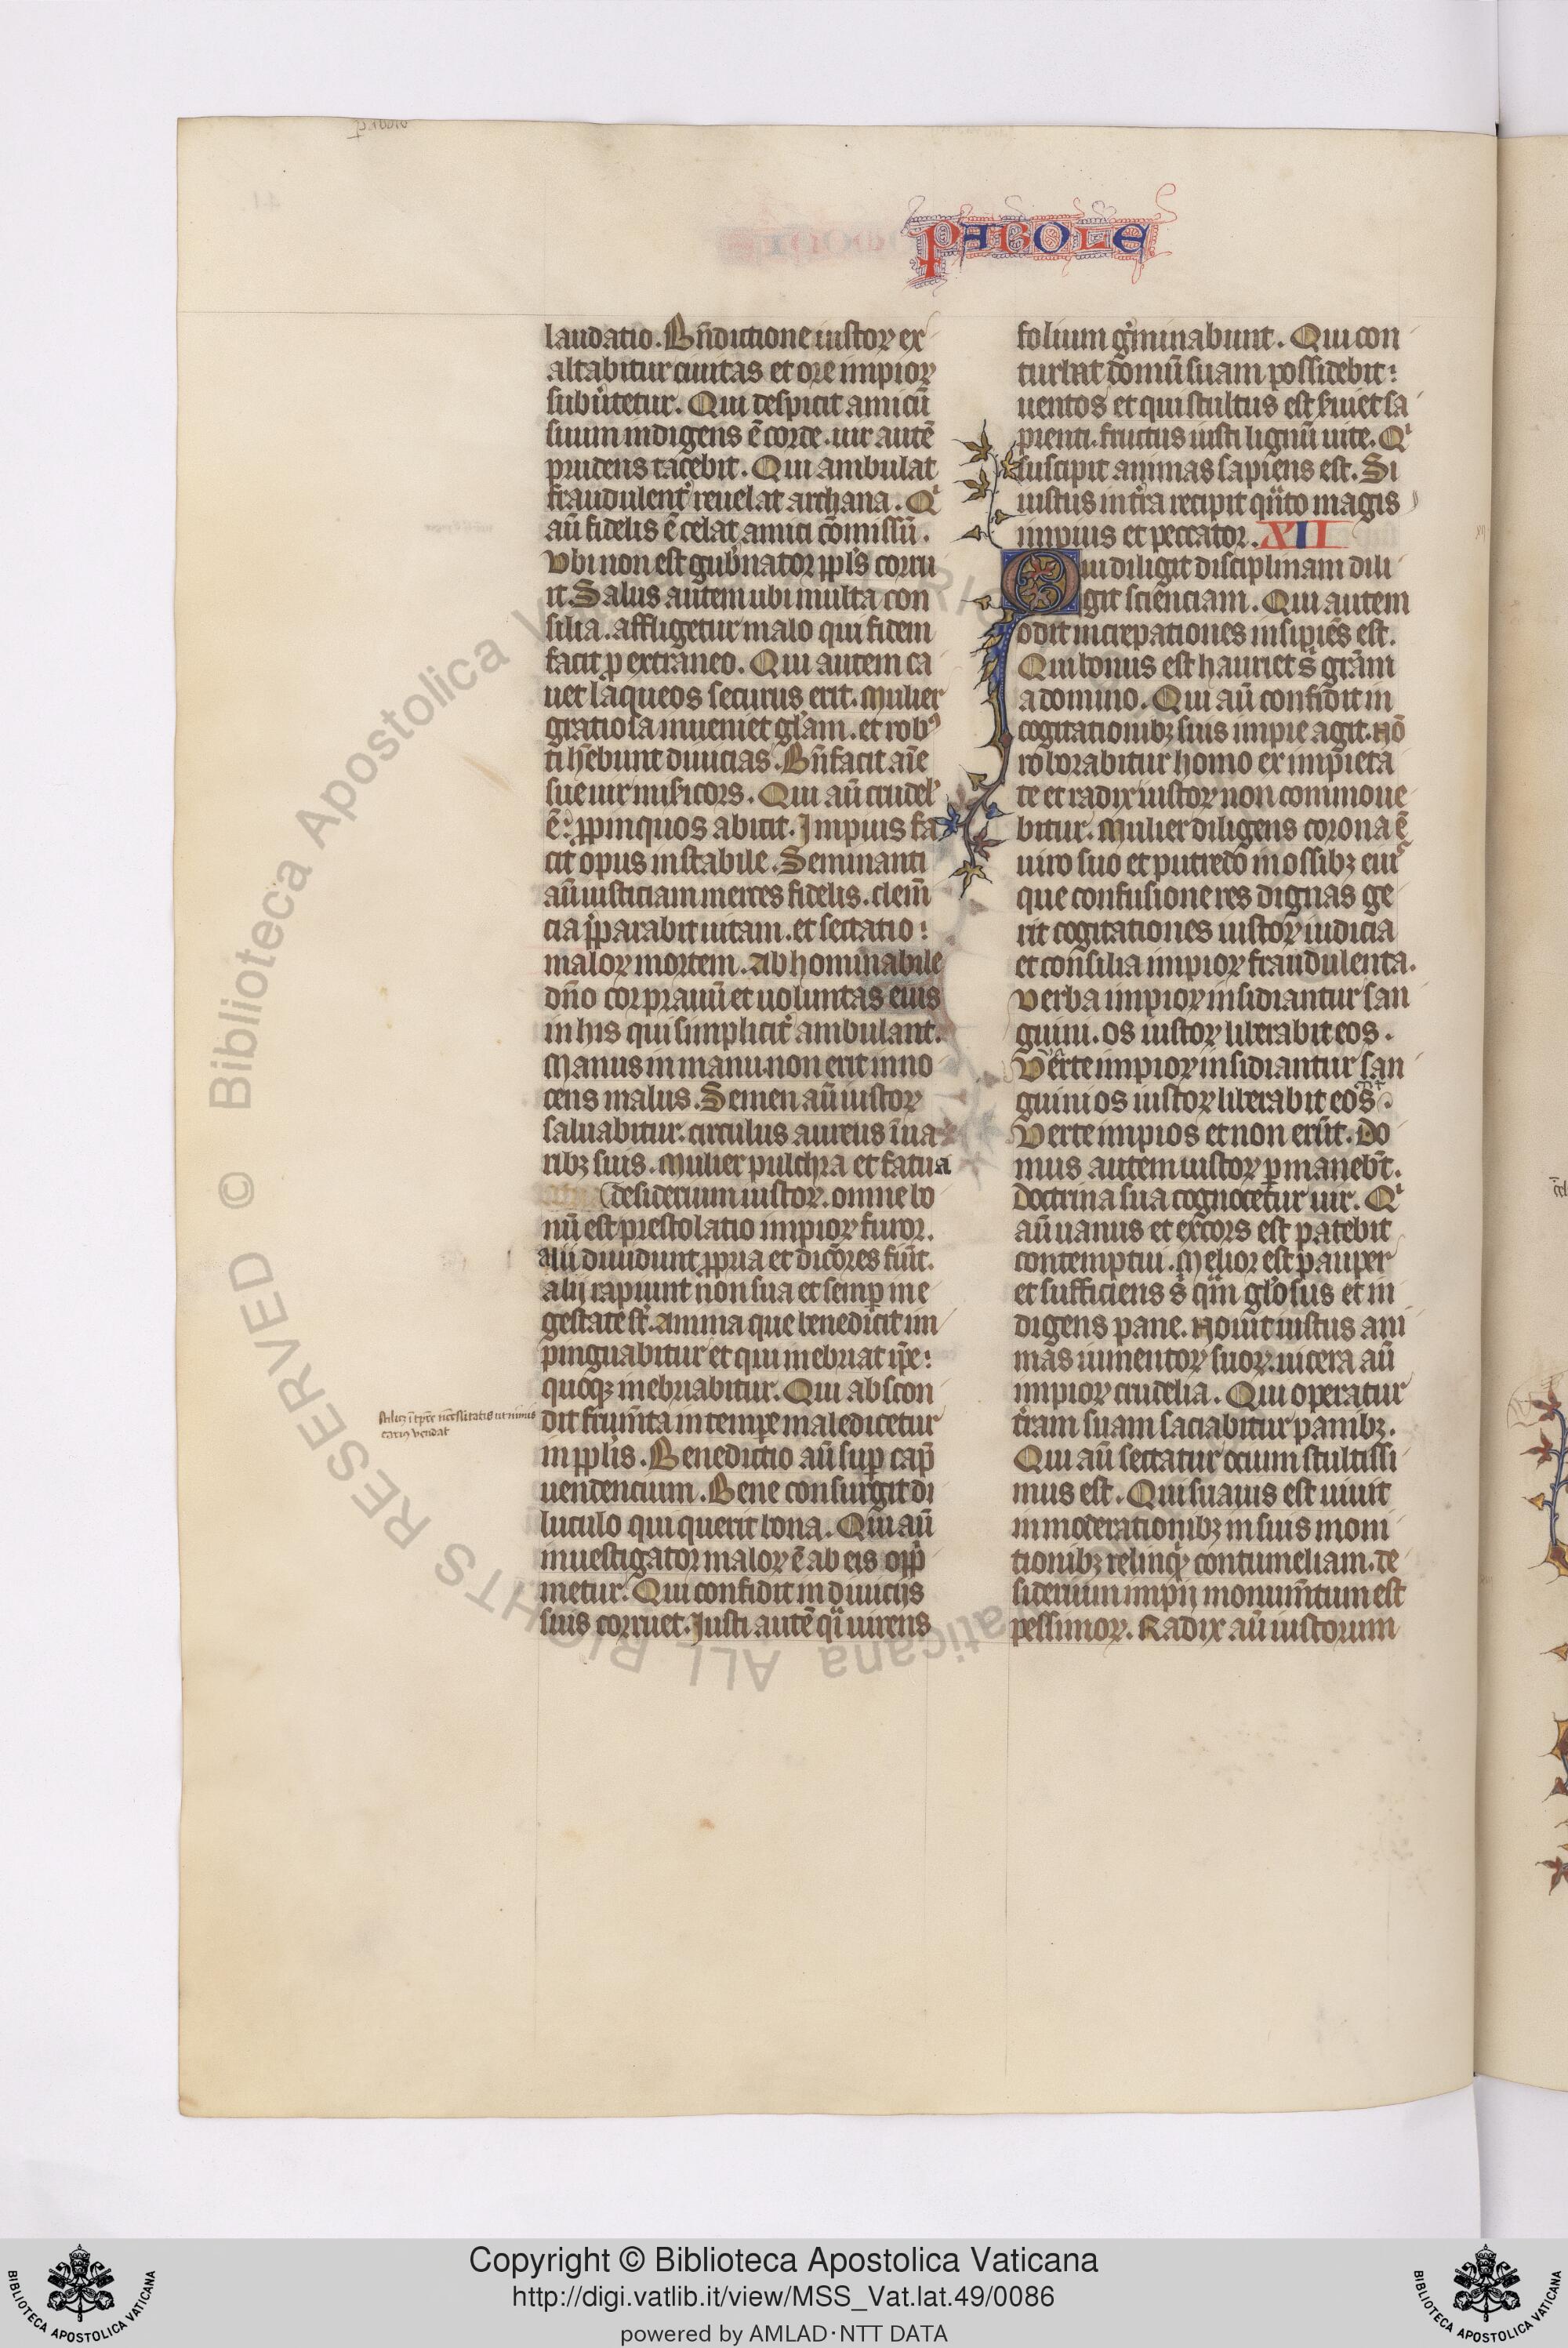 PABOLE
laudatio. Bñdictione iustoꝝ ex
altabitur ciuitas et ore impioꝝ
subu͛tetur. Qui despicit amicū
suum indigens ē corde. uir autē
prudens tacebit. Qui ambulat
fraudulent͛ reuelat archana. Qͥ
aū fidelis ē celat amici cōmissū.
Vbi non est gub͛nator ppl̄s corru
it Salus autem ubi multa con
silia. affligetur malo qui fidem
facit p extraneo. Qui autem ca
uet laqueos securus erit. Mulier
gratiosa inueniet gl̄am. et robꝰ
ti hēbunt diuicias. Bn̄ facit aīe
sue uir mīsicors. Qui aū crudel̓
ē: ꝓpinquos abicit. Impius fa
cit opus instabile. Seminanti
aū iusticiam merces fidelis. clem̄
cia p̄parabit uitam. et sectatio:
maloꝝ mortem. Abhominabile
dn̄o cor prauū et uoluntas eius
in his qui simplicit͛ ambulant.
Manus in manu. non erit inno
cens malus. Semen aū iustoꝝ
saluabitur. circulus aureus ī na
ribꝫ suis. Mulier pulchra et fatua
desiderium iustoꝝ. omne bo
nū est prestolatio impioꝝ furor.
Alii diuidunt ꝓpria et dicōres fiūt.
alij rapiunt non sua et semꝑ in e
gestate st̄. Anima que benedicit im
pinguabitur et qui inebriat ip̄e:
quoqꝫ inebriabitur. Qui abscon
dit frum̄ta in tempe maledicetur
in ppl̄is. Benedictio aū suꝑ cap̄
uendencium. Bene consurgit di
luculo qui querit bona. Qui aū
inuestigator maloꝝ ē ab eis opp̄
metur. Qui confidit in diuicijs
suis corruet. Justi autē qͣi uirens
folium g͛minabunt. Qui con
turbat domū suam possidebit:
uentos et qui stultus est s͛uiet sa
pienti. fructus iusti lignū uite. Qͥ
suscipit animas sapiens est. Si
iustus in t͛ra recipit qͣnto magis
impius et peccator. XII
Qui diligit disciplinam dili
git scienciam. Qui autem
odit increpationes insipiēs est.
Qui bonus est hauriet s̄ gr̄am
a domino. Qui aū confidit in
cogitationibꝫ suis impie agit. Nō
roborabitur homo ex impieta
te et radix iustoꝝ non commoue
bitur. Mulier diligens corona ē
uiro suo et putredo in ossibꝫ eiuꝰ
que confusione res dignas ge
rit cogitationes iustoꝝ iudicia
et consilia impioꝝ fraudulenta.
Verba impioꝝ insidiantur san
guini. os iustoꝝ liberabit eos.
Verte impioꝝ insidiantur san
guini os iustoꝝ liberabit eos.
Verte impios et non erūt. Do
mus autem iustoꝝ ꝑmanebīt.
Doctrina sua cognocetur uir. Qͥ
aū uanus et excors est patebit
contemptui. Melior est pauper
et sufficiens s̄ qͣm gl̄osus et in
digens pane. Nouit iustus ani
mas iumentoꝝ suoꝝ. uicera aū
impioꝝ crudelia. Qui operatur
t͛ram suam saciabitur panibꝫ.
Qui aū sectatur ocium stultissi
mus est. Qui suauis est uiuit
in moderationibꝫ in suis moni
tionibꝫ relinqͥ contumeliam. de
siderium impij monum̄tum est
pessimoꝝ. Radix aū iustorum
Copyright © Biblioteca Apostolica Vaticana
http://digi.vatlib.it/view/MSS_Vat.lat.49/0086
powered by AMLAD·NTT DATA
BIBLIOTECA APOSTOLICA VATICANA
BIBLIOTECA APOSTOLICA VATICANA
© Biblioteca Apostolica Vaticana ALL RIGHTS RESERVED